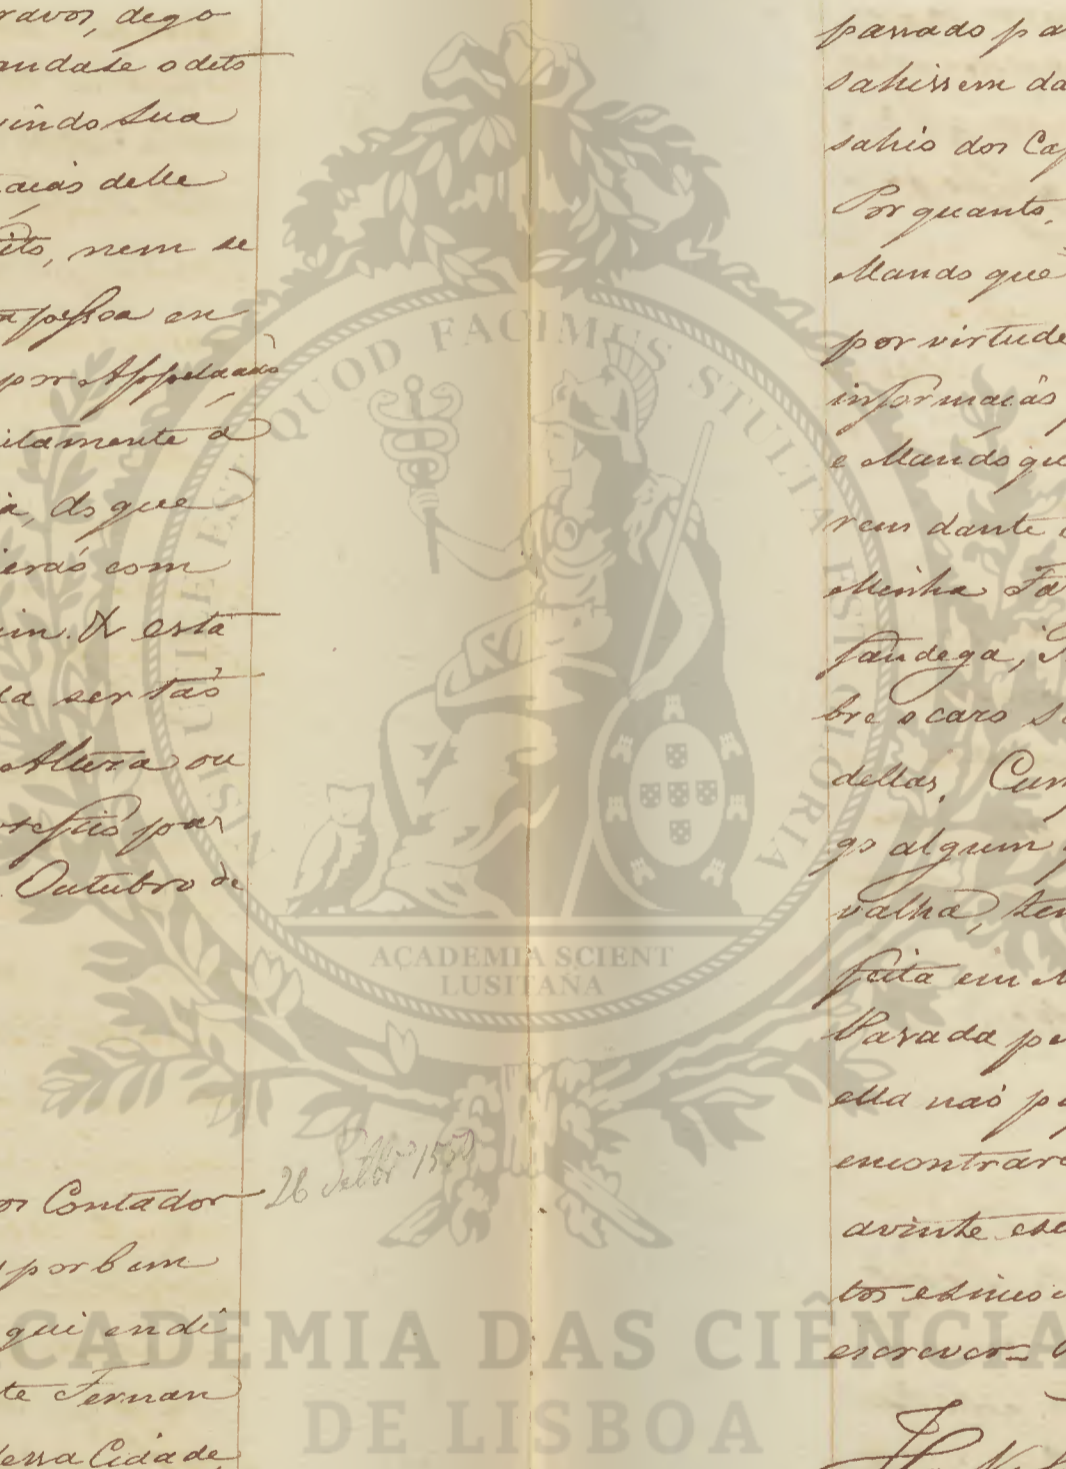 ravos, dego
andase o deto
vindo Sua
delle
nem se
pessoa en
por Appelaçaõ
itamente á
a, do que
eraó com
im. & está
da ser taõ
Alteza ou
por
Outubro de
os Contador
por bem
qui endi
te Fernan
dessa Cidade,
26 Setbro 1550
QUOD FACIMUS STULTA EST GLORIA
ACADEMIA SCIENT
LUSITANA
ACADEMIA DAS CIÊNCIA
DE LISBOA
passado pa
sahissem da
sahio dos Ca
Por quanto,
Mando que
por virtude
informaçaõ
e Mando que
rem dante
Minha Fa
fandega,
bre o cazo se
dellas, Cum
go algum
valha, ten
feita em
Passada pe
ella naõ pa
encontrare
avinte
tos esinco
escrever =